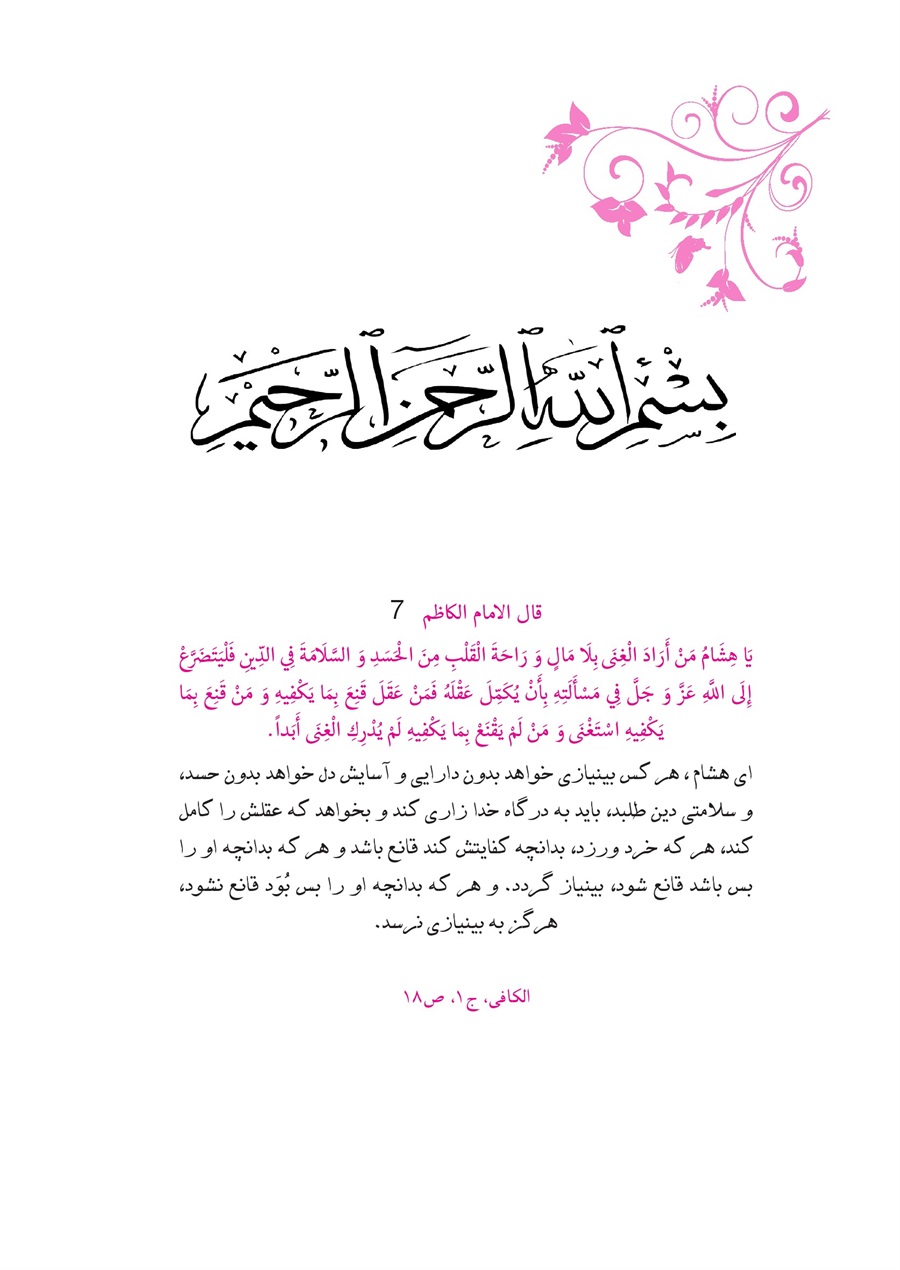 بِسْمِ ٱللَّهِ ٱلرَّحْمَٰنِ ٱلرَّحِيمِ
قال الامام الکاظم 7
يَا هِشَامُ مَنْ أَرَادَ الْغِنَى بِلَا مَالٍ وَ رَاحَةَ الْقَلْبِ مِنَ الْحَسَدِ وَ السَّلَامَةَ فِي الدِّينِ فَلْيَتَضَرَّعْ
إِلَى اللَّهِ عَزَّ وَ جَلَّ فِي مَسْأَلَتِهِ بِأَنْ يُكَمِّلَ عَقْلَهُ فَمَنْ عَقَلَ قَنِعَ بِمَا يَكْفِيهِ وَ مَنْ قَنِعَ بِمَا
يَكْفِيهِ اسْتَغْنَى وَ مَنْ لَمْ يَقْنَعْ بِمَا يَكْفِيهِ لَمْ يُدْرِكِ الْغِنَى أَبَداً.
ای هشام ، هر کس بینیازی خواهد بدون دارایی و آسایش دل خواهد بدون حسد،
و سلامتی دین طلبد، باید به درگاه خدا زاری کند و بخواهد که عقلش را کامل
کند، هر که خرد ورزد، بدانچه کفایتش کند قانع باشد و هر که بدانچه او را
بس باشد قانع شود، بینیاز گردد. و هر که بدانچه او را بس بُوَد قانع نشود،
هرگز به بینیازی نرسد.
الکافی، ج۱، ص۱۸